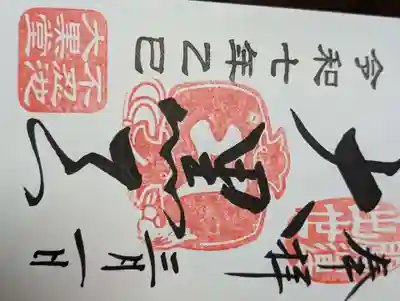 奉拝
三月一日
大黒天
令和七年乙巳
不忍池
大黒堂